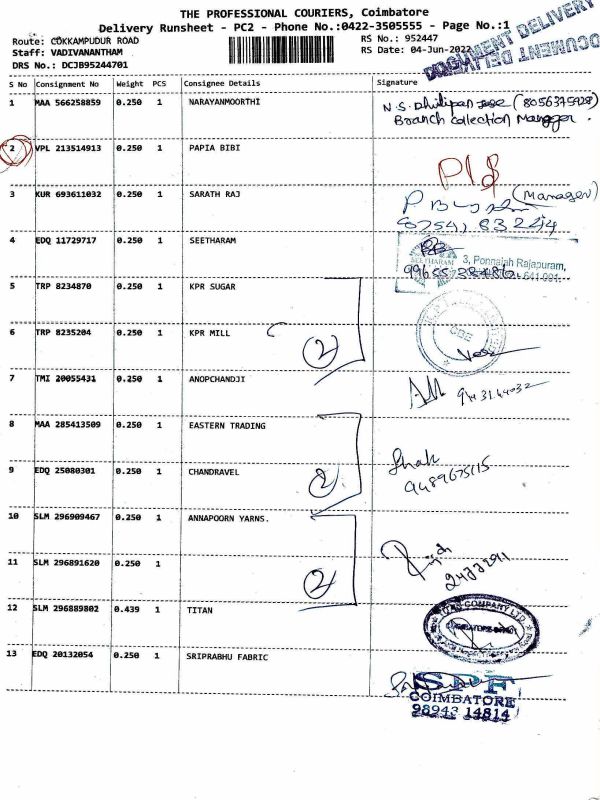 THE PROFESSIONAL COURIERS, Coimbatore
Delivery Runsheet - PC2 - Phone No.:0422-3505555 - Page No.:1
Route: COKKAMPUDUR ROAD RS No.: 952447
Staff: VADIVANANTHAM RS Date: 04-Jun-2022
DRS No.: DCJB95244701
DOCUMENT DELIVERY
S No Consignment No Weight PCS Consignee Details Signature
1 MAA 566258859 0.250 1 NARAYANMOORTHI
Branch Collection Manager.
2 VPL 213514913 0.250 1 PAPIA BIBI
3 KUR 693611032 0.250 1 SARATH RAJ
(Manager)
4 EDQ 11729717 0.250 1 SEETHARAM
SEETHARAM 3, Ponnaiah Rajapuram,
5 TRP 8234870 0.250 1 KPR SUGAR
6 TRP 8235204 0.250 1 KPR MILL
2
CBE
7 TMI 20055431 0.250 1 ANOPCHANDJI
8 MAA 285413509 0.250 1 EASTERN TRADING
9 EDQ 25080301 0.250 1 CHANDRAVEL
2
9489675115
10 SLM 296909467 0.250 1 ANNAPOORN YARNS.
11 SLM 296891620 0.250 1
2
12 SLM 296889802 0.439 1 TITAN
COMPANY LTD.
13 EDQ 20132054 0.250 1 SRIPRABHU FABRIC
SPF
COIMBATORE
98943 14814